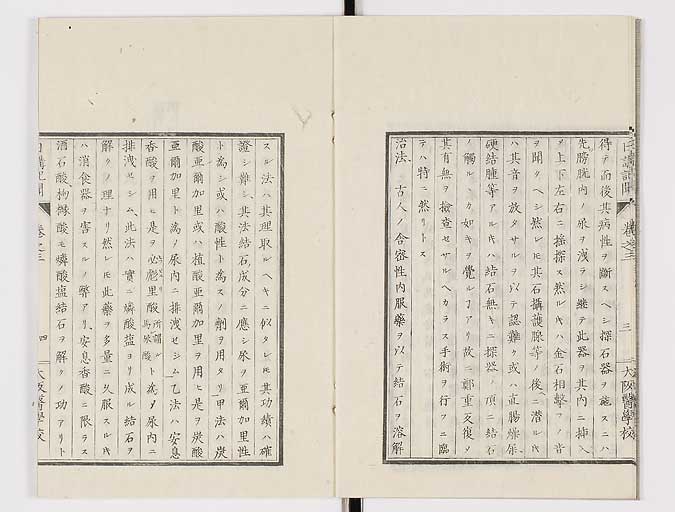 得テ而後其病性ヲ斷スヘシ探石器ヲ施スニハ
先膀胱内ノ尿ヲ洩ラシ継テ此器ヲ其内ニ挿入
シ上下左右ニ搖探ス然ルキハ金石相擊フノ音
ヲ聞クヘシ然レモ其石攝護腺等ノ後ニ潜ルキ
ハ其音ヲ放タサルヲ以テ認難ク或ハ直腸燥屎
硬結腫等アルキハ結石無キニ探器ノ頂ニ結石
ノ觸ルヽカ如キヲ覺ルヿアリ故ニ鄭重反復シ
其有無ヲ檢查セサルヘカラス手術ヲ行フニ臨
テハ特ニ然リトス
治法 古人ノ舎密性内服藥ヲ以テ結石ヲ溶解
三
大阪醫學校
スル法ハ其理取ルヘキニ似タレモ其功績ハ確
證シ難シ其法結石成分ニ應シ尿ヲ亞爾加里性
ト為シ或ハ酸性ト為スノ劑ヲ用タリ甲法ハ炭
酸亞爾加里或ハ植酸亞爾加里ヲ用ヒ是ヲ炭酸
亞爾加里ト為メ尿内ニ排洩セシム乙法ハ安息
香酸ヲ用ヒ是ヲ必彪里酸所謂馬尿酸ト為メ尿内ニ
排洩セシム此法ハ實ニ燐酸塩ヨリ成ル結石ヲ
解クノ理ナリ然レモ此藥ヲ多量ニ久服スルキ
ハ消食器ヲ害スルノ弊アリ安息香酸ニ限ラス
酒石酸枸櫞酸モ燐酸塩結石ヲ解クノ功アリト
卷之三
四
大阪醫學校